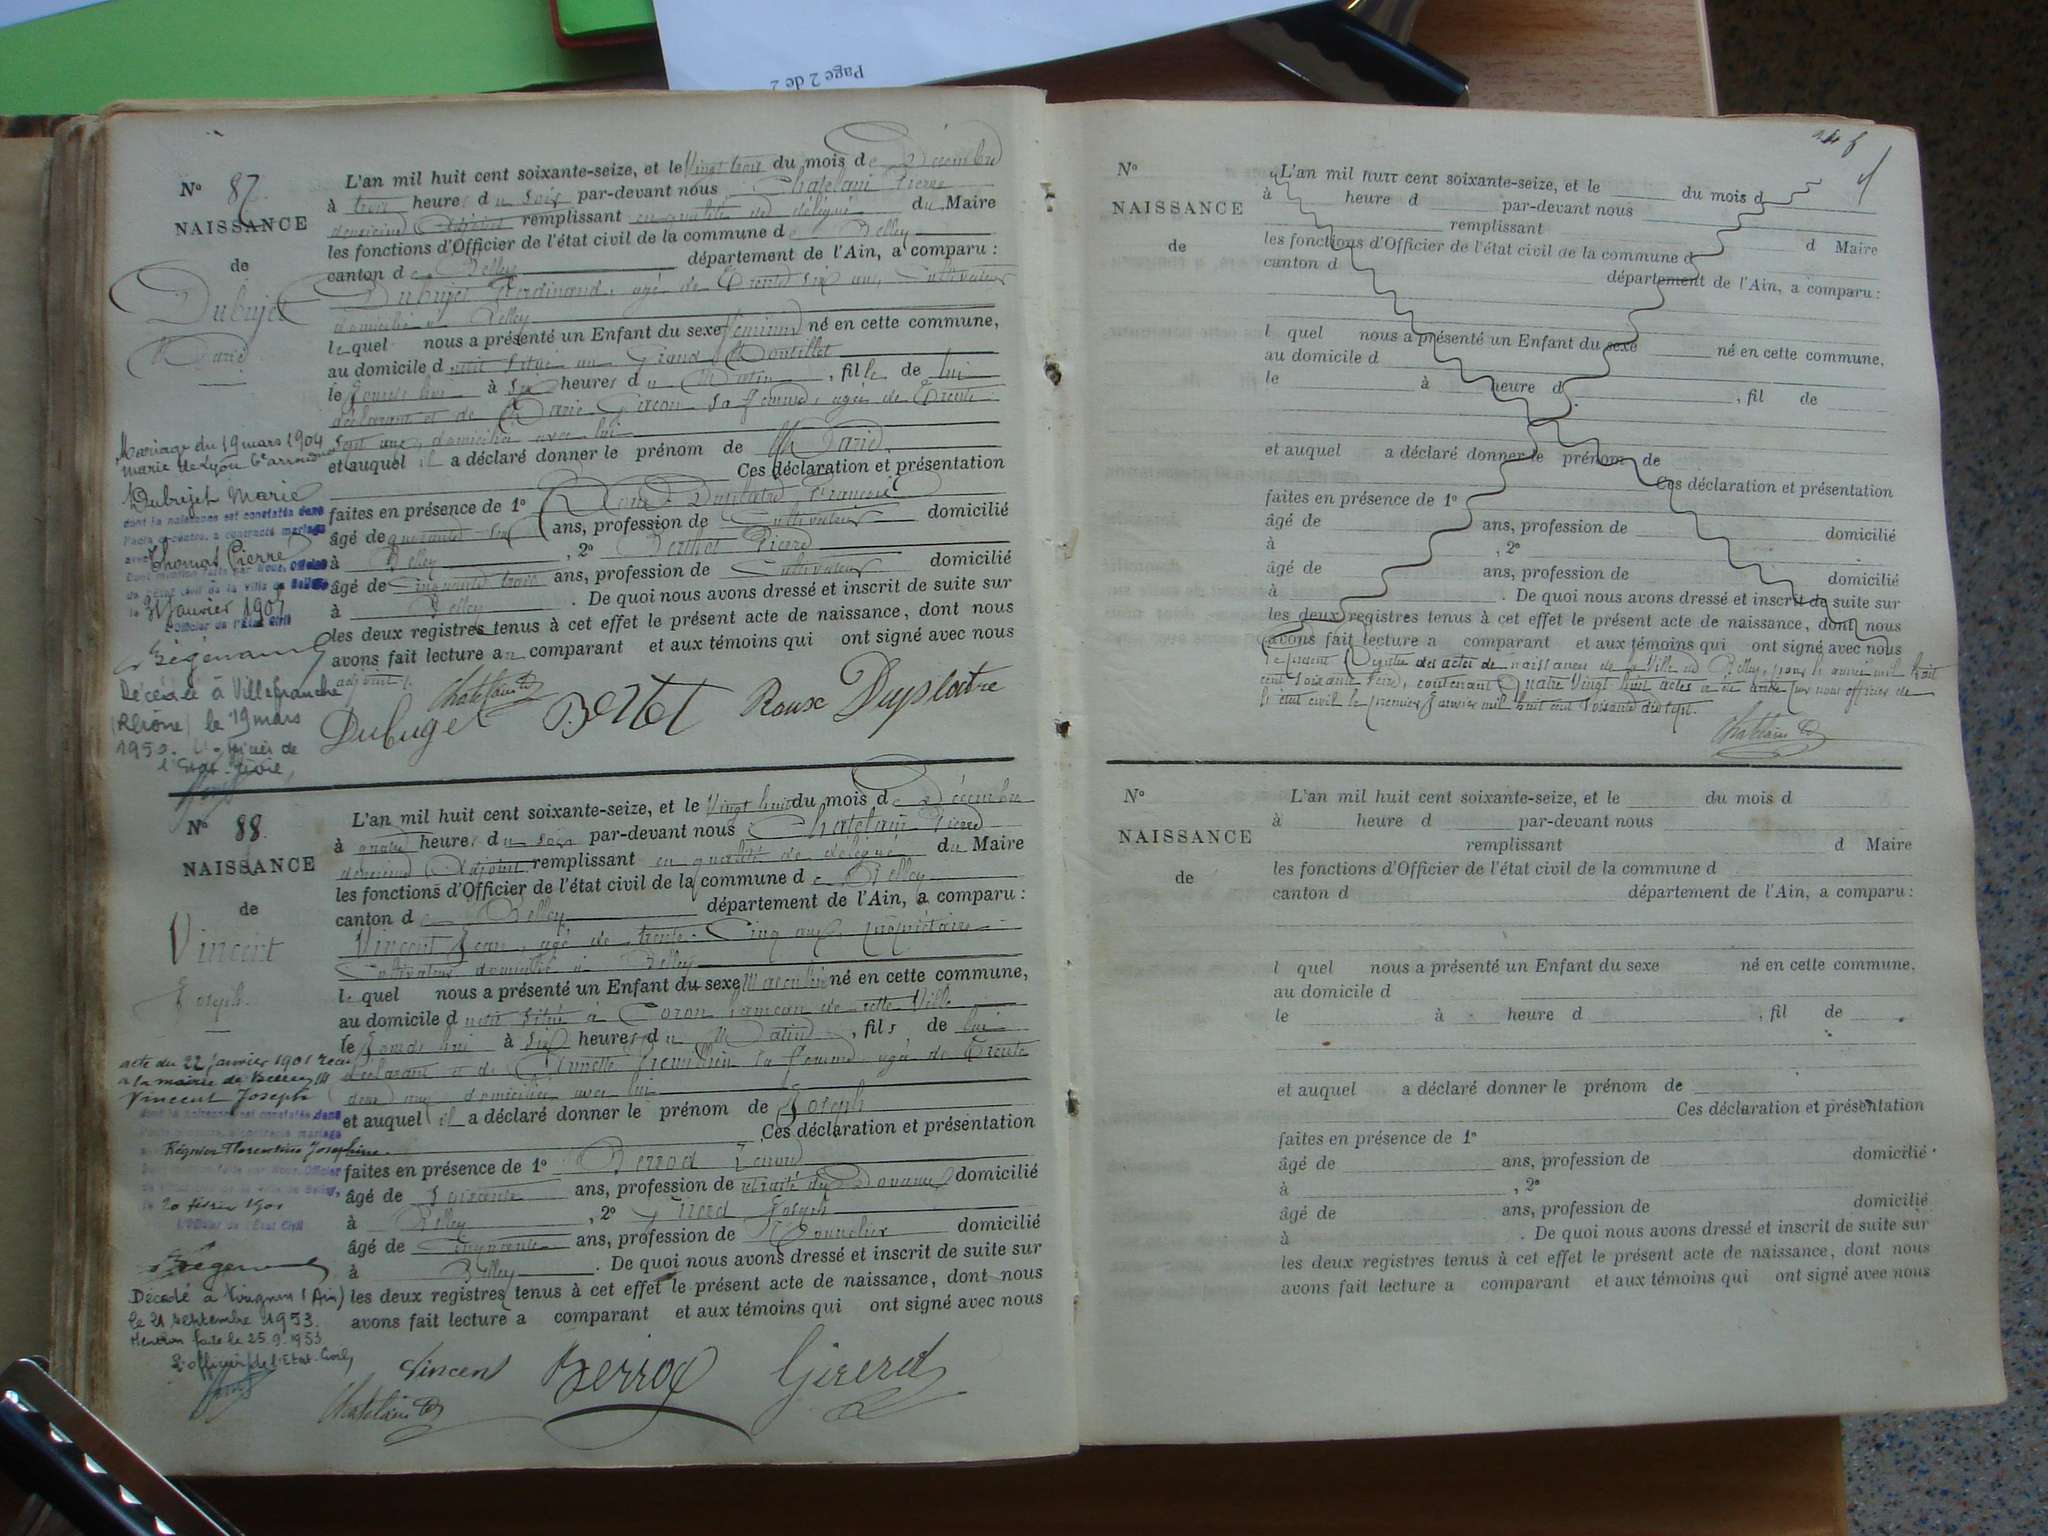 Page 2 de 2
N° 87
NAISSANCE
de
Dubujet
Marie
L'an mil huit cent soixante-seize, et le Vingt trois du mois de Décembre
à trois heures du soir par-devant nous Chatelain Pierre
deuxième Adjoint remplissant en qualité de délégué du Maire
les fonctions d'Officier de l'état civil de la commune de Belley
canton de Belley département de l'Ain, a comparu :
Dubujet Ferdinand, agé de Trente six ans, Cultivateur
domicilié à Belley
lequel nous a présenté un Enfant du sexe féminin né en cette commune,
au domicile d situé au Grand Montillet
le jourd'hui à six heures du Matin, fille de lui
déclarant et de Marie sa femme, agée de Trente
sept ans, domiciliée avec lui
et auquel il a déclaré donner le prénom de Marie
Ces déclaration et présentation
faites en présence de 1° Roux Duplatre François
âgé de quarante six ans, profession de Cultivateur domicilié
à Belley, 2° Berthet Pierre
âgé de Cinquante trois ans, profession de Cultivateur domicilié
à Belley. De quoi nous avons dressé et inscrit de suite sur
les deux registres tenus à cet effet le présent acte de naissance, dont nous
avons fait lecture au comparant et aux témoins qui ont signé avec nous
adjoint
Chatelain
Dubuget Bertet Roux Duplatre
Mariage du 19 mars 1904
mairie de Lyon 6e arrondt
Dubujet Marie
dont la naissance est constatée dans
l'acte ci-contre, a contracté mariage
avec Thomas Pierre
Dont mention faite par Nous, Officier
de l'état civil de la Ville de Belley
le janvier 1907
L'Officier de l'État Civil
Décédée à Villefranche
(Rhône) le 19 mars
195 . L'officier de
l'Etat-Civil,
N° 88.
NAISSANCE
de
Vincent
Joseph
L'an mil huit cent soixante-seize, et le Vingt huit du mois de Décembre
à quatre heures du soir par-devant nous Chatelain Pierre
deuxième Adjoint remplissant en qualité de délégué du Maire
les fonctions d'Officier de l'état civil de la commune de Belley
canton de Belley département de l'Ain, a comparu :
Vincent Jean, agé de trente-Cinq ans propriétaire
Cultivateur domicilié à Belley
lequel nous a présenté un Enfant du sexe Masculin né en cette commune,
au domicile d situé à Coron hameau de cette Ville
le jourd'hui à six heures du Matin, fils de lui
déclarant et de sa femme, agée de Trente
deux ans domiciliée avec lui
et auquel il a déclaré donner le prénom de Joseph
Ces déclaration et présentation
faites en présence de 1° Berrod
âgé de Soixante ans, profession de retraité des Douanes domicilié
à Belley, 2° Girerd Joseph
âgé de Cinquante ans, profession de domicilié
à Belley. De quoi nous avons dressé et inscrit de suite sur
les deux registres tenus à cet effet le présent acte de naissance, dont nous
avons fait lecture a comparant et aux témoins qui ont signé avec nous
Vincent Berrod Girerd
Chatelain
acte du 22 janvier 1901 reçu
à la mairie de Belley
Vincent Joseph
dont la naissance est constatée dans
l'acte ci-contre, a contracté mariage
Régnier Florentine Joséphine
Dont mention faite par Nous, Officier
de l'état civil de la Ville de Belley,
le 20 février 1901
L'Officier de l'État Civil
Décédé à Virignin (Ain)
le 21 septembre 1953.
Mention faite le 25.9.1953
L'officier de l'Etat-Civil,
N°
NAISSANCE
de
L'an mil huit cent soixante-seize, et le du mois d
à heure d par-devant nous
remplissant d Maire
les fonctions d'Officier de l'état civil de la commune d
canton d département de l'Ain, a comparu :
l quel nous a présenté un Enfant du sexe né en cette commune,
au domicile d
le à heure d , fil de
et auquel a déclaré donner le prénom de
Ces déclaration et présentation
faites en présence de 1°
âgé de ans, profession de domicilié
à , 2°
âgé de ans, profession de domicilié
à . De quoi nous avons dressé et inscrit de suite sur
les deux registres tenus à cet effet le présent acte de naissance, dont nous
avons fait lecture a comparant et aux témoins qui ont signé avec nous
Le présent Registre des actes de naissances de la Ville de Belley, pour l'année mil huit
cent soixante seize, contenant Quatre Vingt huit actes a été par nous officier de
l'état civil le premier Janvier mil huit cent soixante dix sept.
Chatelain
N°
NAISSANCE
de
L'an mil huit cent soixante-seize, et le du mois d
à heure d par-devant nous
remplissant d Maire
les fonctions d'Officier de l'état civil de la commune d
canton d département de l'Ain, a comparu :
l quel nous a présenté un Enfant du sexe né en cette commune,
au domicile d
le à heure d , fil de
et auquel a déclaré donner le prénom de
Ces déclaration et présentation
faites en présence de 1°
âgé de ans, profession de domicilié
à , 2°
âgé de ans, profession de domicilié
à . De quoi nous avons dressé et inscrit de suite sur
les deux registres tenus à cet effet le présent acte de naissance, dont nous
avons fait lecture a comparant et aux témoins qui ont signé avec nous